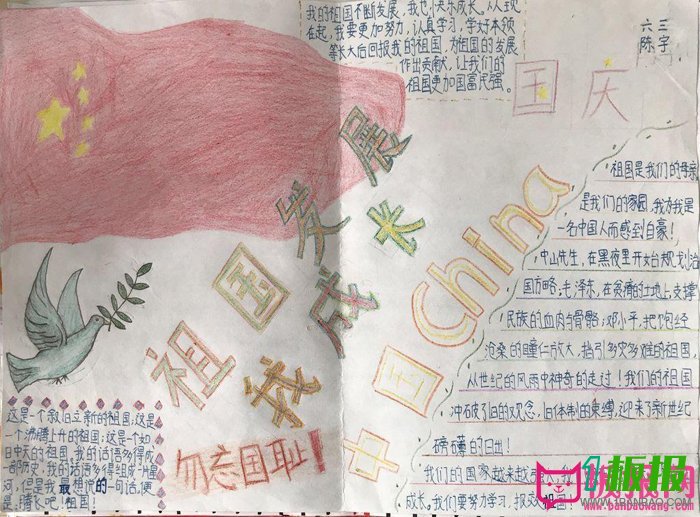 我的祖国不断发展,我也快乐成长。从现
在起,我要更加努力,认真学习,学好本领
等长大后回报我的祖国,为祖国的发展
作出贡献,让我们的
祖国更加国富民强。
六三
陈宇
国庆
祖国发展
我成长
中国China
勿忘国耻!
祖国是我们的母亲
是我们的家园,我为我是
一名中国人而感到自豪!
中山先生,在黑夜里开始规划治
国方略,毛泽东,在贫瘠的土地上支撑
民族的血肉与骨骼,邓小平,把饱经
沧桑的瞳仁放大,指引多灾多难的祖国,
从世纪的风雨中神奇的走过!我们的祖国
冲破了旧的观念,旧体制的束缚,迎来了新世纪
磅礴的日出!
我们的国家越来越
成长。我们要努力学习,报效祖国!
这是一个叙旧立新的祖国;这是
一个沸腾上升的祖国;这是一个如
日中天的祖国。我的话语多得成
部历史,我的话语多得组成一片星
河,但是我最想说的一句话,便
是:腾飞吧!祖国!
板报网
www.banbaowang.com
1BANBAO.COM